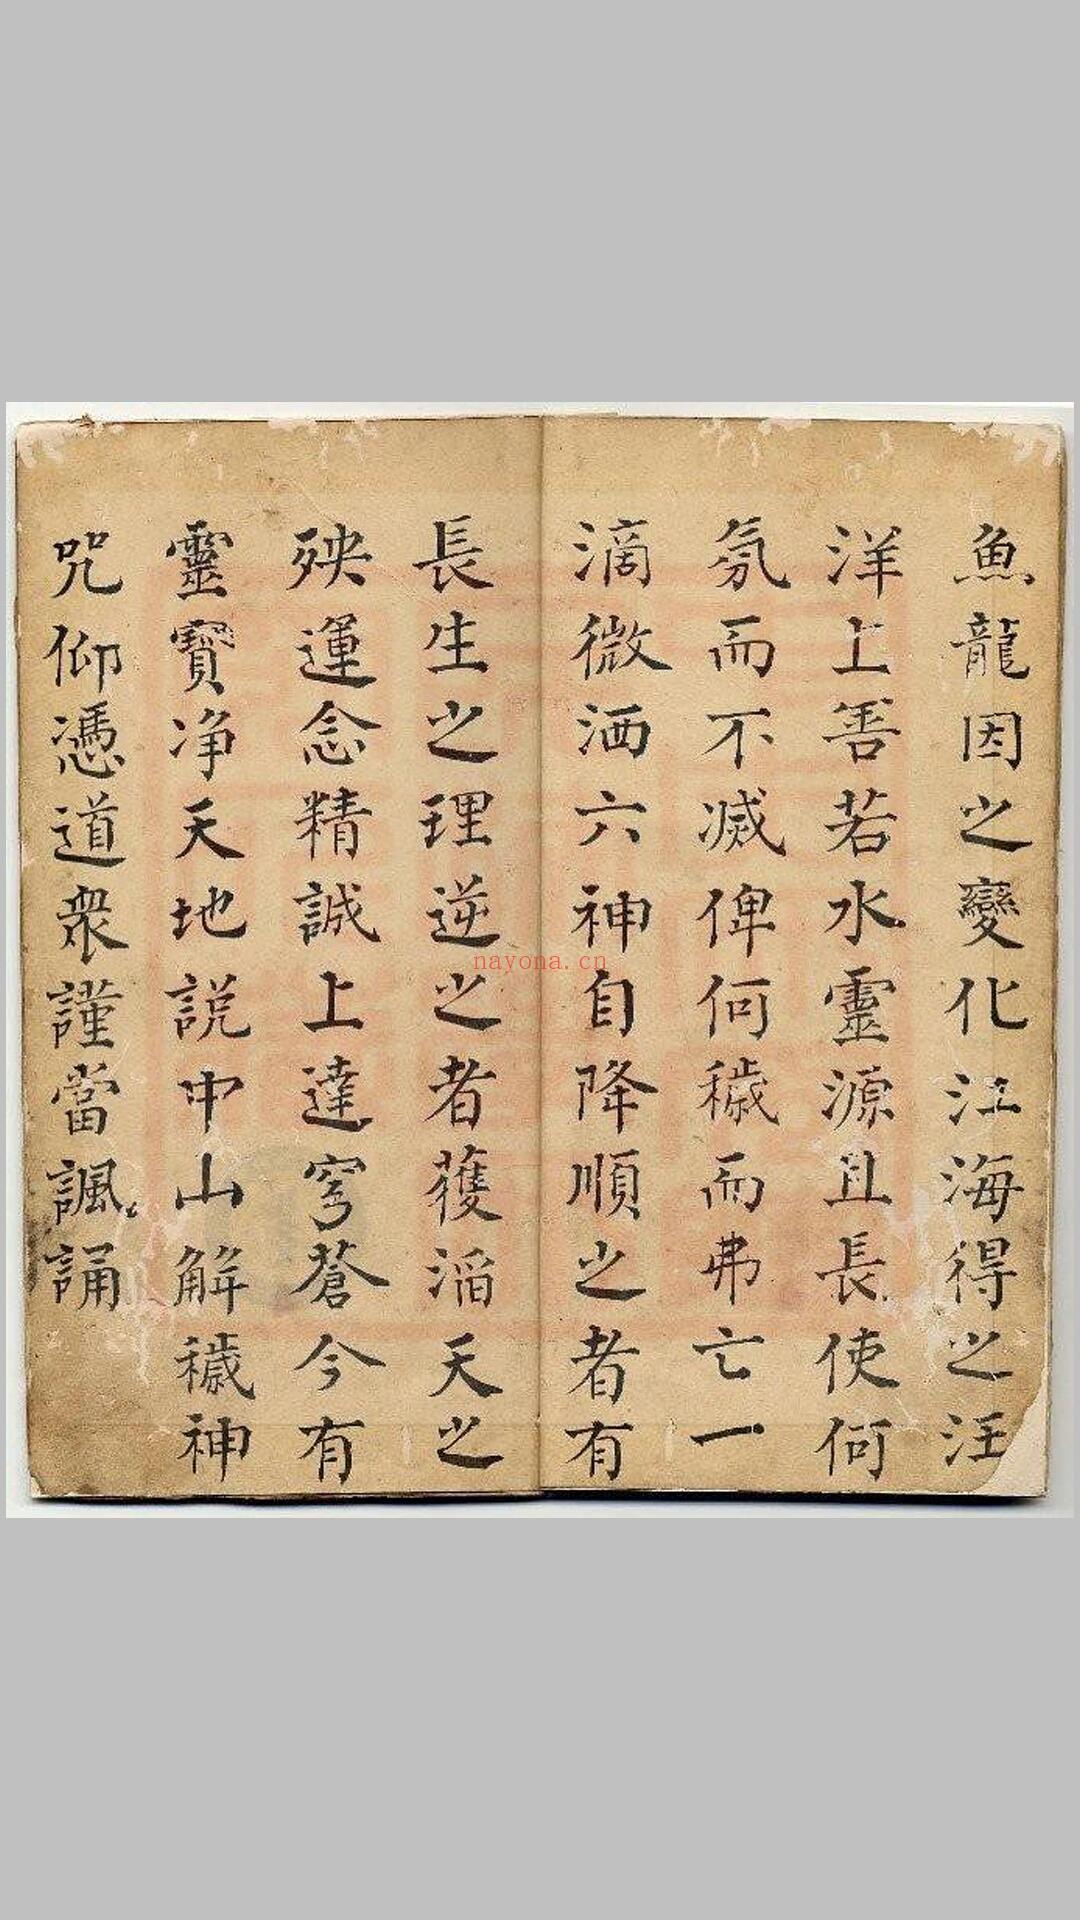 魚龍因之變化江海得之汪
洋上善若水靈源且長使何
氛而不滅俾何穢而弗亡一
滴微洒六神自降順之者有
長生之理逆之者獲滔天之
殃運念精誠上達穹蒼今有
靈寶净天地説中山解穢神
咒仰憑道衆謹當諷誦
nayona.cn